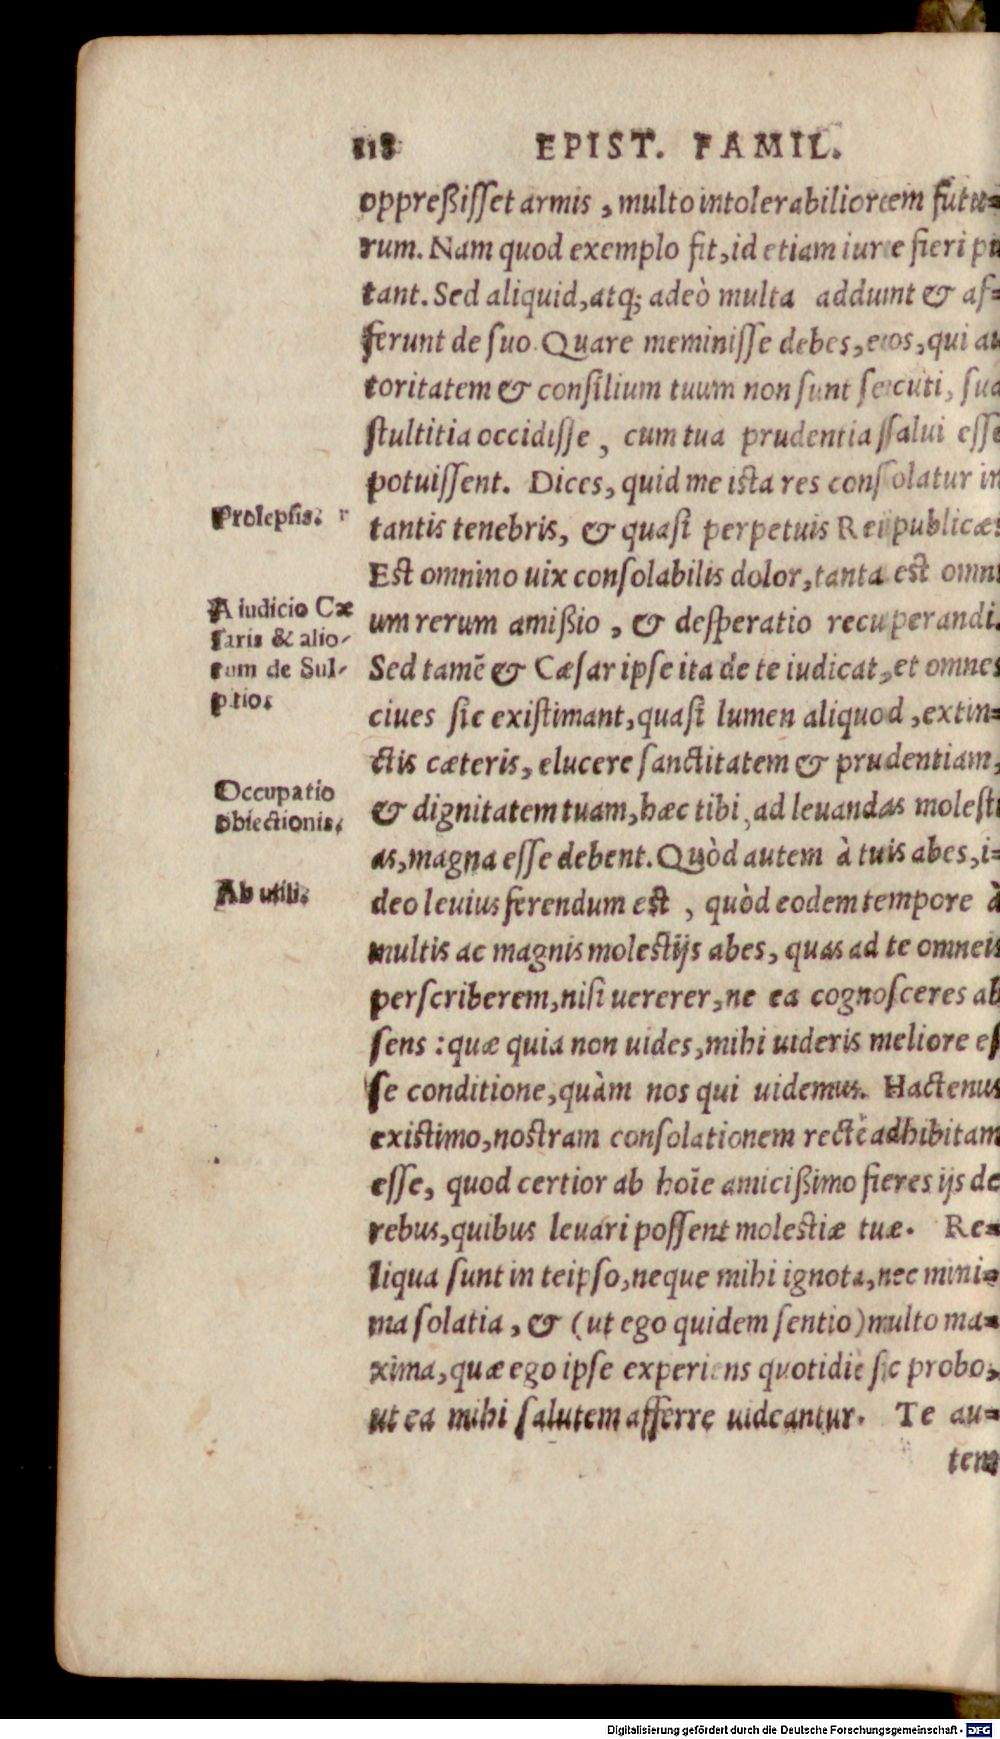 118 EPIST. FAMIL.
oppreßiſſet armis, multo intolerabiliorem futu=
rum. Nam quod exemplo fit, id etiam iure fieri pu
tant. Sed aliquid, atq; adeò multa addunt & af=
ferunt de ſuo. Quare meminiſſe debes, eos, qui au
toritatem & conſilium tuum non ſunt ſecuti, ſua
ſtultitia occidiſſe, cum tua prudentia ſalui eſſe
potuiſſent. Dices, quid me iſta res conſolatur in
Prolepſis.
tantis tenebris, & quaſi perpetuis Reipublicæ?
Eſt omnino uix conſolabilis dolor, tanta eſt omni
A iudicio Cæ
ſaris & alio-
rum de Sul-
pitio.
um rerum amißio, & deſperatio recuperandi.
Sed tamē & Cæſar ipſe ita de te iudicat, et omnes
ciues ſic exiſtimant, quaſi lumen aliquod, extin=
ctis cæteris, elucere ſanctitatem & prudentiam,
Occupatio
obiectionis.
& dignitatem tuam, hæc tibi, ad leuandas moleſti
as, magna eſſe debent. Quòd autem à tuis abes, i=
Ab utili.
deo leuius ferendum eſt, quòd eodem tempore à
multis ac magnis moleſtijs abes, quas ad te omneis
perſcriberem, niſi uererer, ne ea cognoſceres ab
ſens: quæ quia non uides, mihi uideris meliore eſ
ſe conditione, quàm nos qui uidemus. Hactenus
exiſtimo, noſtram conſolationem rectè adhibitam
eſſe, quod certior ab hoīe amicißimo fieres ijs de
rebus, quibus leuari poſſent moleſtiæ tuæ. Re=
liqua ſunt in teipſo, neque mihi ignota, nec mini=
ma ſolatia, & (ut ego quidem ſentio) multo ma=
xima, quæ ego ipſe experiens quotidie ſic probo,
ut ea mihi ſalutem afferre uideantur. Te au=
tem
Digitalisierung gefördert durch die Deutsche Forschungsgemeinschaft - DFG